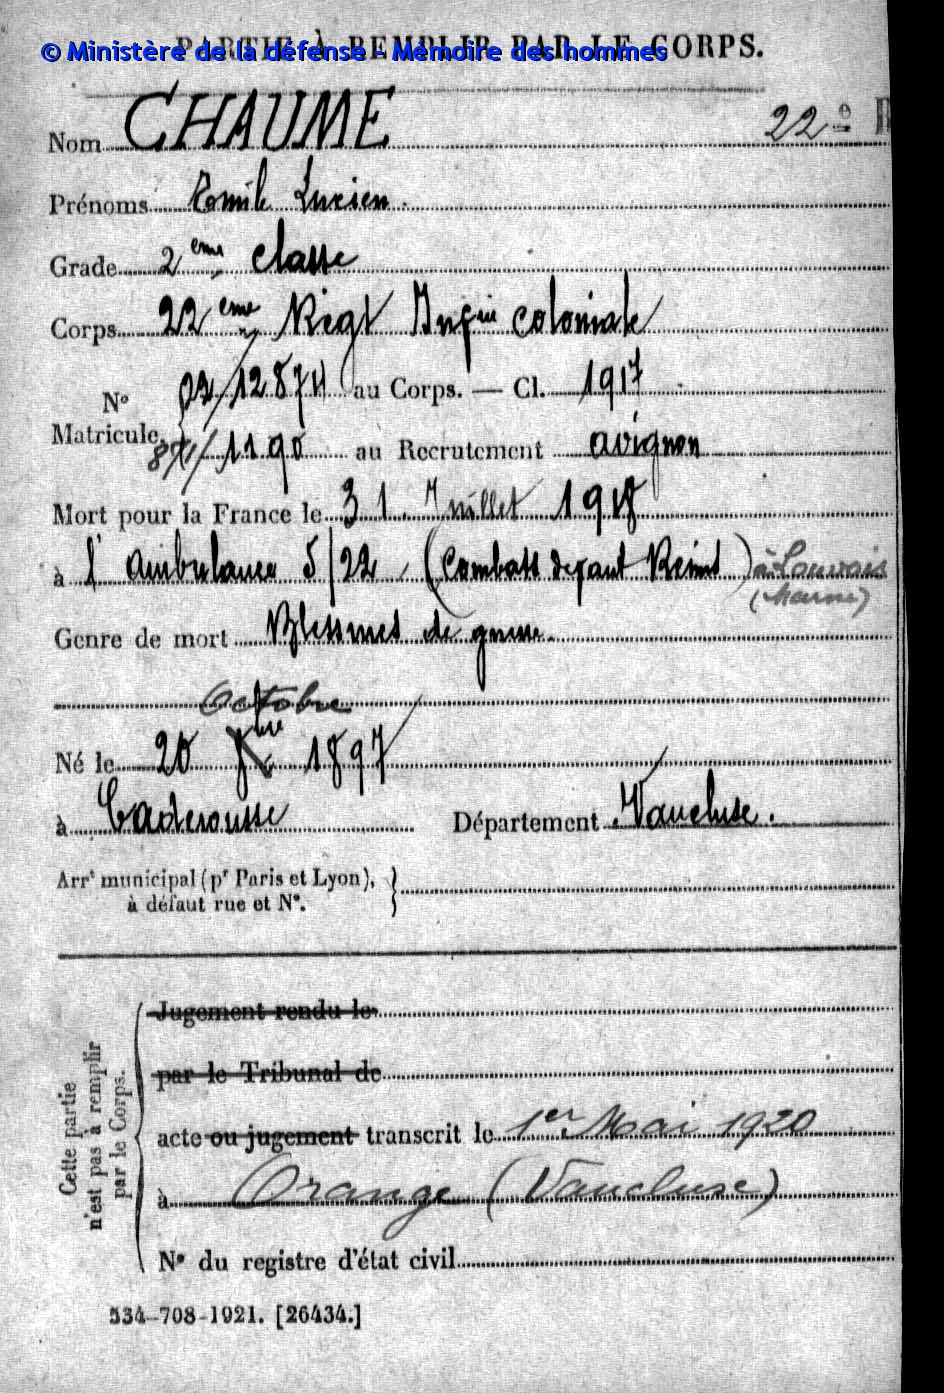 PARTIE À REMPLIR PAR LE CORPS.
© Ministère de la défense - Mémoire des hommes
22e R
Nom CHAUME
Prénoms Emile Lucien.
Grade 2ème classe
Corps 22ème Régt Infie coloniale
N° Matricule. 22/12874 au Corps. — Cl. 1917
871/1190 au Recrutement avignon
Mort pour la France le 31 Juillet 1918
à l'ambulance 5/22, (Combats devant Reims) à Louvois
(Marne)
Genre de mort Blessures de guerre.
Octobre
Né le 20 1897
à Caderousse Département Vaucluse.
Arrt municipal (pr Paris et Lyon),
à défaut rue et N°.
Cette partie
n'est pas à remplir
par le Corps.
Jugement rendu le
par le Tribunal de
acte ou jugement transcrit le 1er Mai 1920
à Orange (Vaucluse)
N° du registre d'état civil
534-708-1921. [26434.]